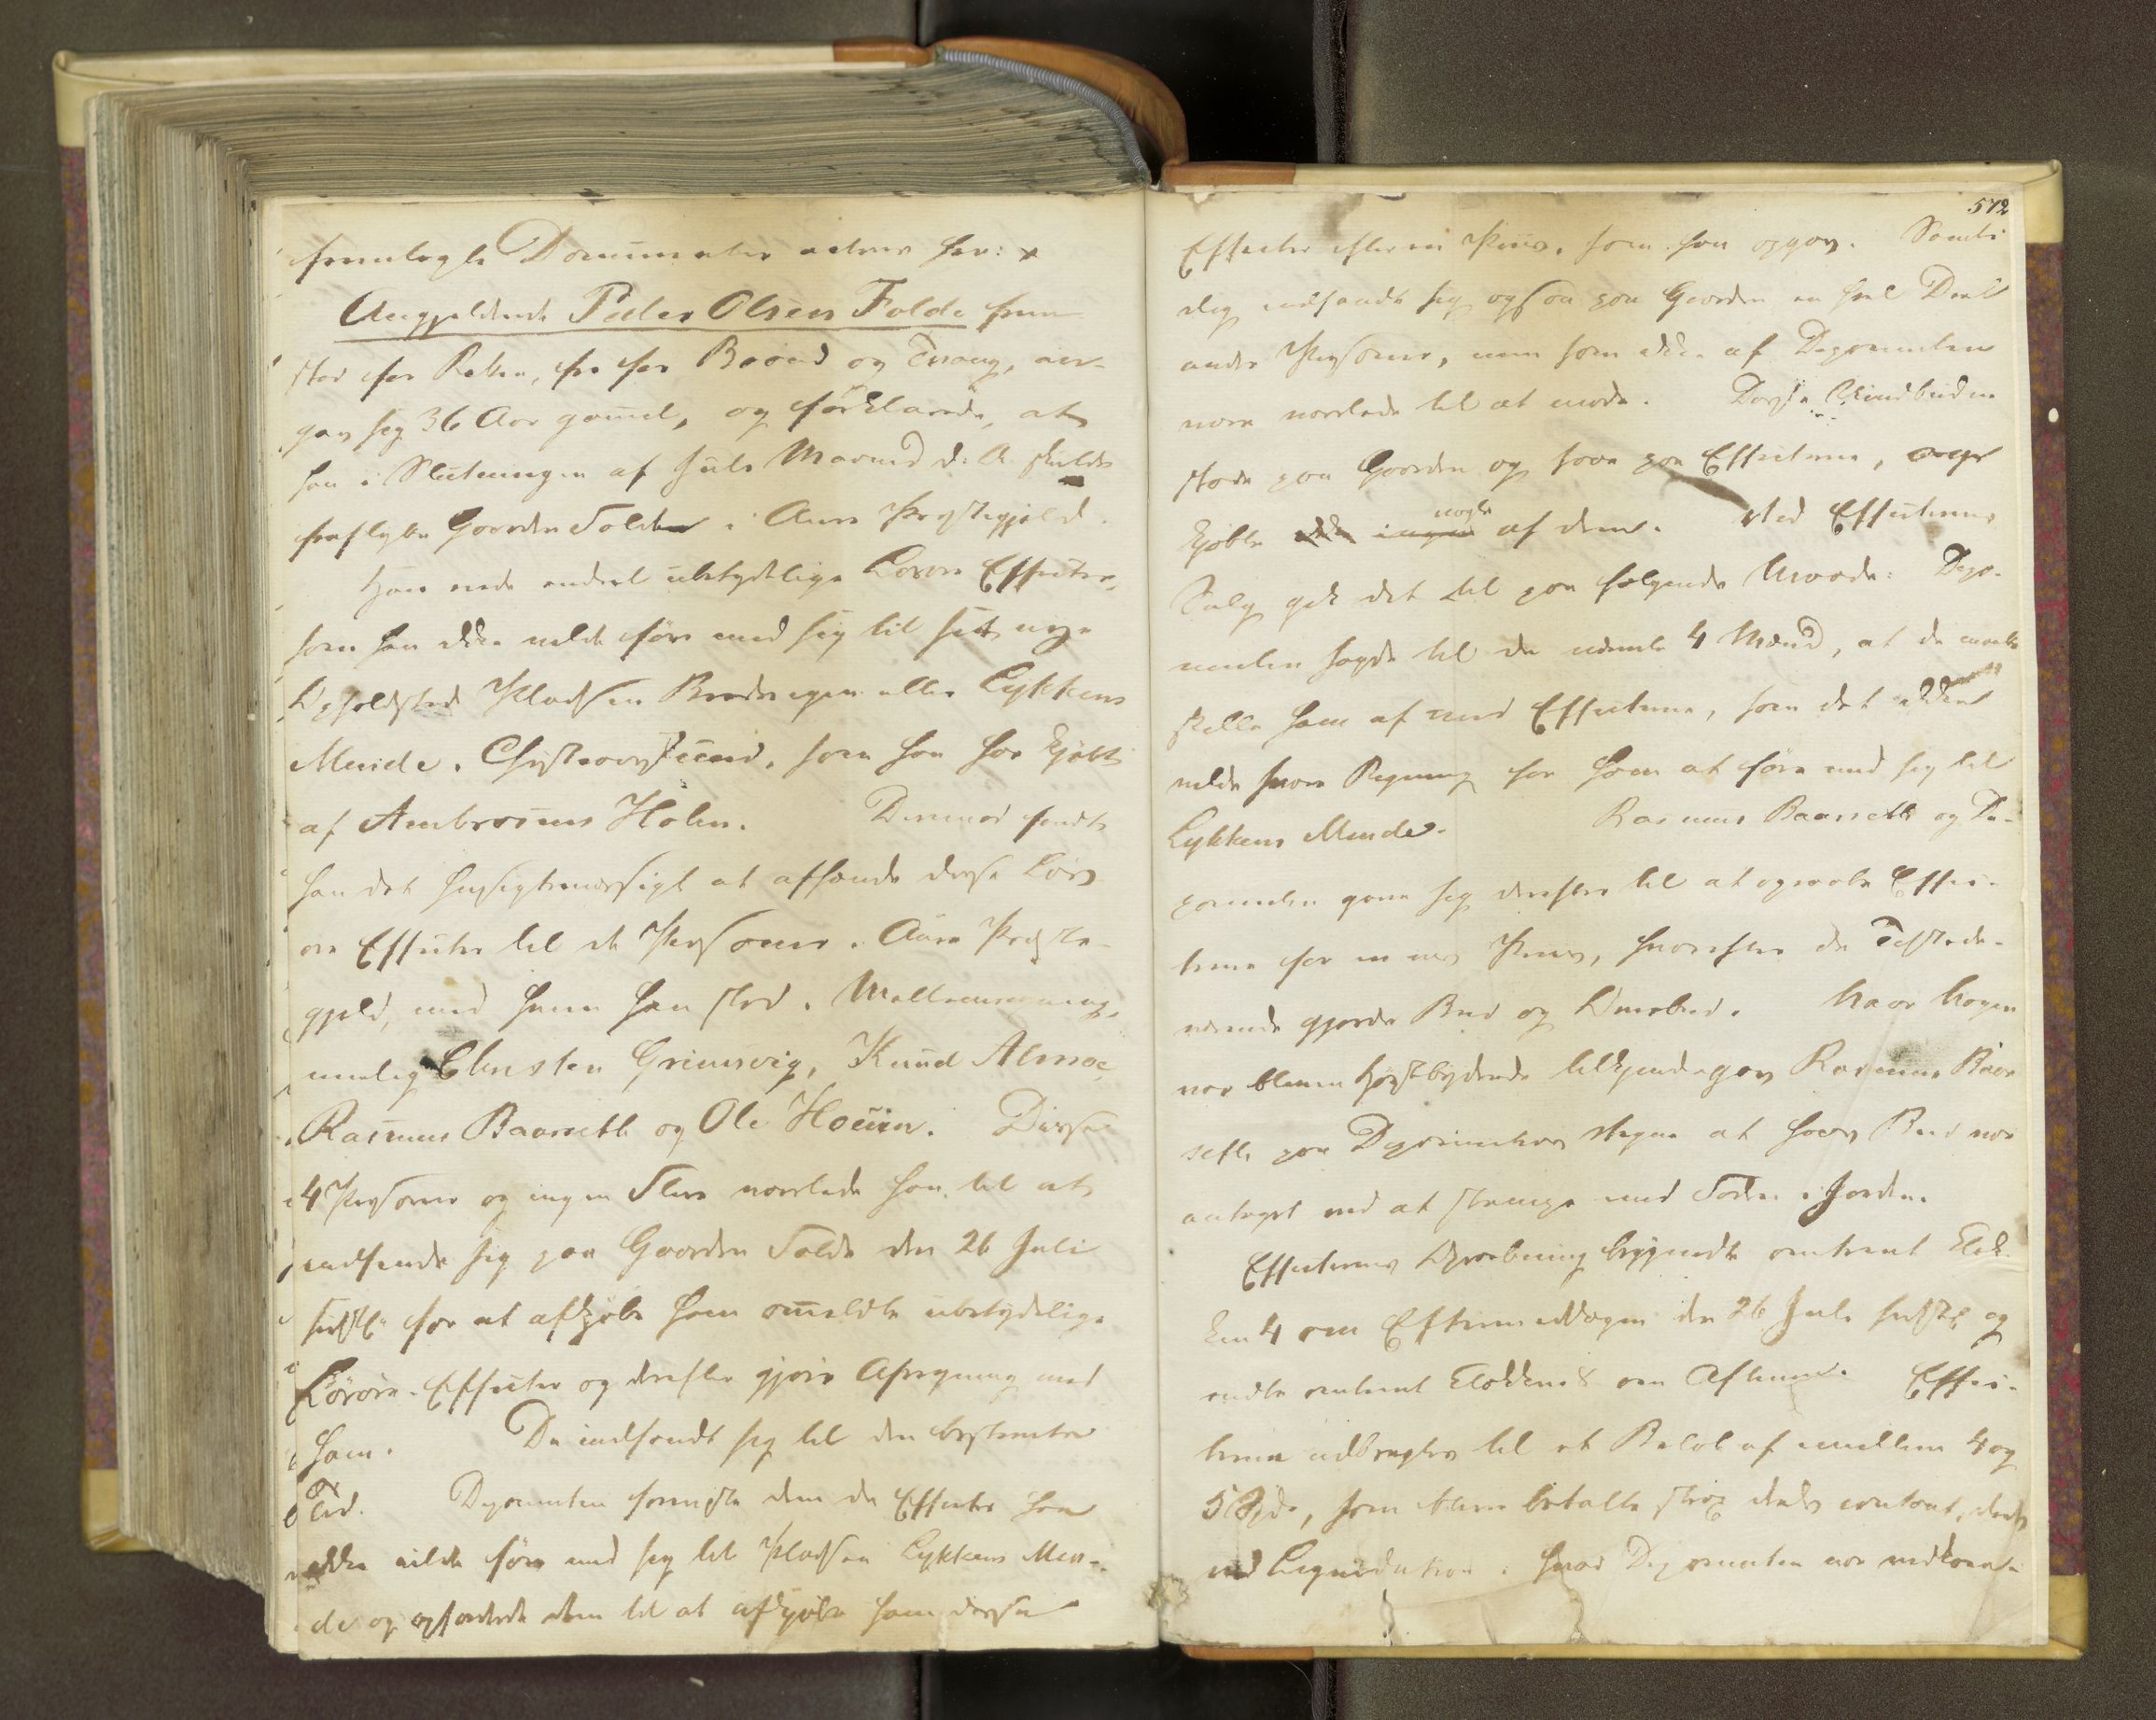 fremlagte Documenter acteres her: x
Angjeldende Peder Olsen Folde frem-
stod for Retten, fri for Baand og Tvang, an-
gav sig 36 Aar gammel, og forklarede, at
han i Slutningen af Juli Maaned d: A. skulde
fraflytte Gaarden Folde i Aure Præstegjeld.
Han eiede endeel ubetydelige Løsøre Effecter,
som han ikke vilde føre med sig til sit nye
Opholdssted Pladsen eller Lykkens
Minde i Christiansund, som han har kjøbt
af Ambrosius Holm. Derimod fandt
han det hensigtsmæssigt at afhænde disse Løs-
øre Effecter til de Personer i Aure Præste-
gjeld, med hvem han stod i Mellemregning,
nemlig Christen Grimsvig, Knud Almoe,
Rasmus Baarsetht og Ole Houen. Disse
4 Personer og ingen Flere varslede han til at
indfinde sig paa Gaarden Folde den 26 Juli
sidstl: for at afkjøbe ham omeldte ubetydelige
Løsøre-Effecter og derefter gjøre Afregning med
ham. De indfandt sig til den bestemte
Tid. Deponenten foreviste dem de Effecter han
ikke vilde føre med sig til Pladsen Lykkens Min-
de og opfordrede dem til at afkjøbe ham disse
572
Effecter efter en Priis, som han opgav. Samti-
dig indfandt sig ogsaa paa Gaarden en heel Deel
andre Personer, men som ikke af Deponenten
vare varslede til at møde. Disse Uindbudne
stode paa Gaarden og saae paa Effecterne,
kjøbte ikke ingen nogle af dem. Ved Effecternes
Salg gik det til paa følgende Maade: Depo-
nenten sagde til de nævnte 4 Mænd, at de maatte
skille ham af med Effecterne, som det ikke
vilde svare Regning for ham at føre med sig til
Lykkens Minde. Rasmus Baarsetht og De-
ponenten gave sig derefter til at opraabe Effec-
terne for en vis Priis, hvorefter de Tilstede-
værende gjorde Bud og Overbud. Naar Nogen
var bleven Høistbydende tilkjendegav Rasmus Baar-
seth paa Deponentens Vegne at hans Bud var
antaget ved at stampe med Foden i Jorden.
Effecternes Opraabning begyndte omtrent Klok-
ken 4 om Eftermiddagen den 26 Juli sidstl: og
endte omtrent Klokken 8 om Aftenen. Effec-
terne udbragtes til et Beløb af mellem 4 og
5 Spd, som bleve betalte strax deels contant, deels
ved Liqvidation i hvad Deponenten var vedkom-